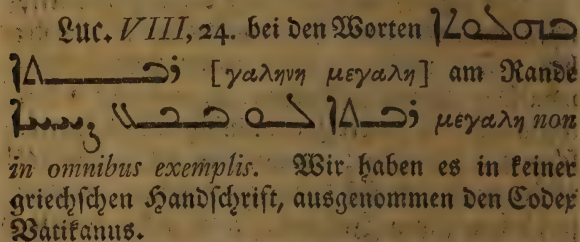 Luc. VIII, 24. bei den Worten
ܪܒܬܐ [γαληνη μεγαλη] am Rande
ܪܒܬܐ ܠܘ μεγαλη non
in omnibus exemplis. Wir haben es in keiner
griechschen Handschrift, ausgenommen den Codex
Vatikanus.